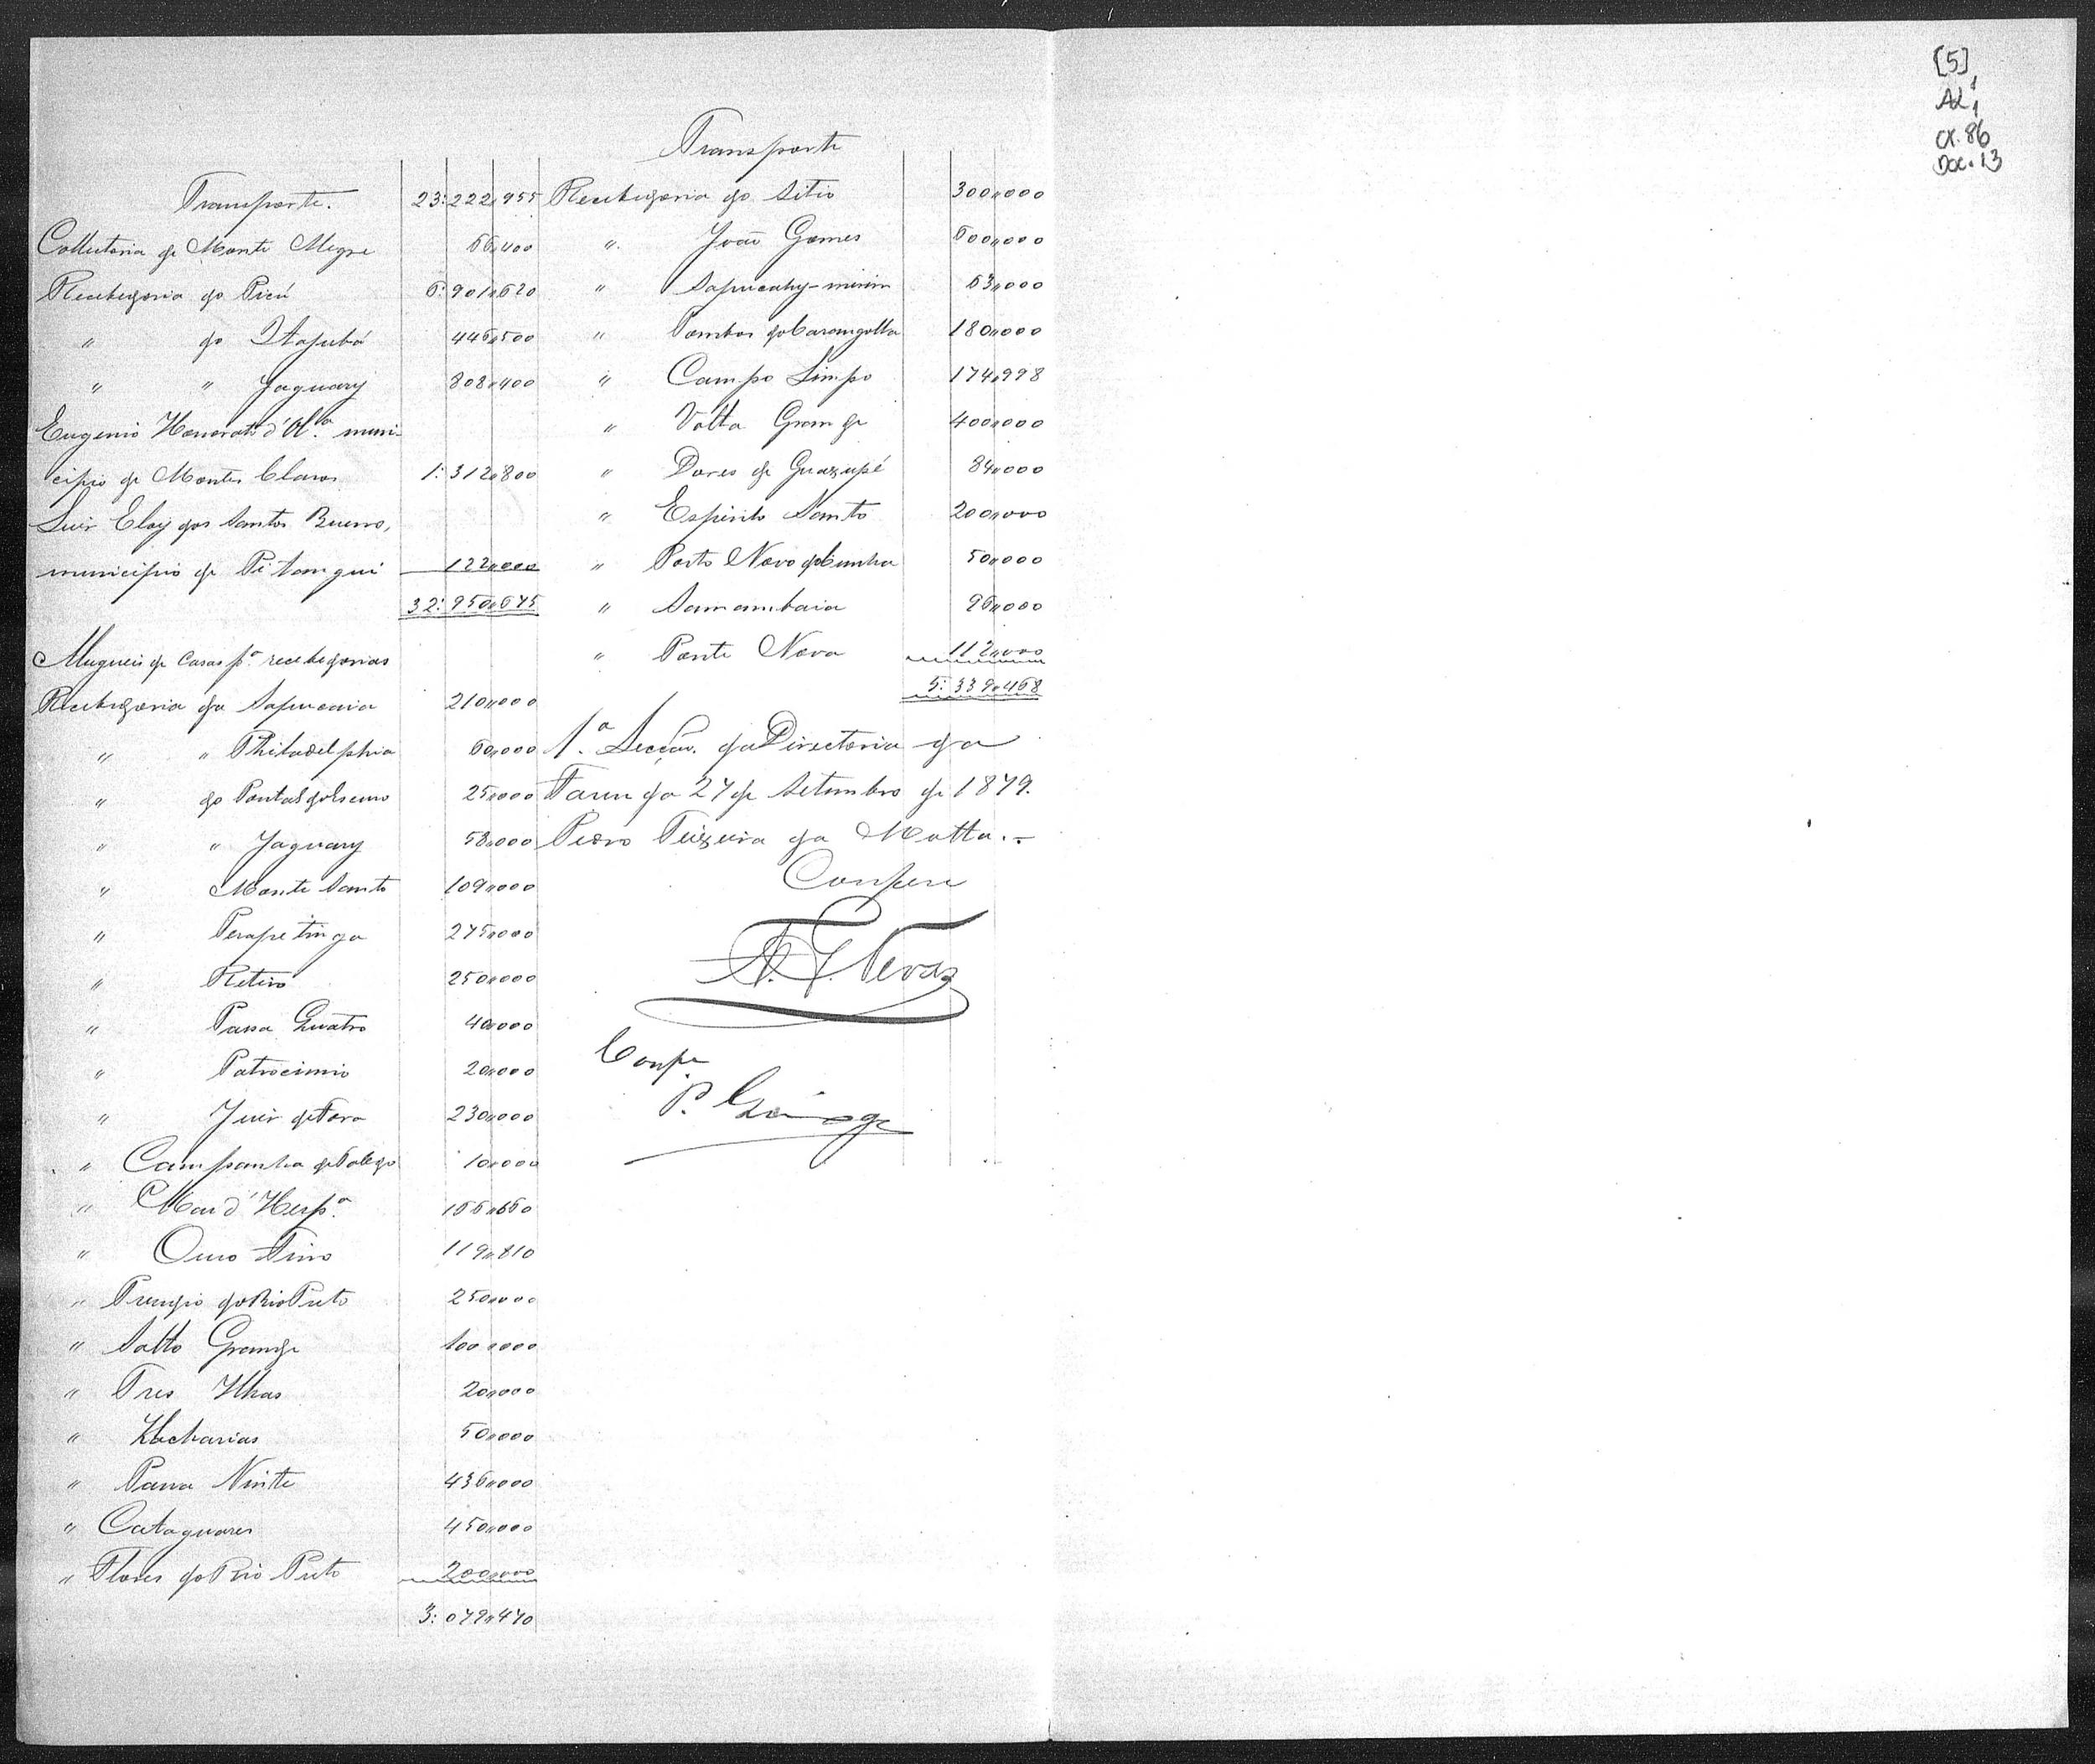 Transporte. 23:222,,955
Collectoria de Monte Alegre 66,,400
Recebedoria do Picú 6:901,,620
" do Itajubá 446,,500
" " Jaguary 808,,400
Eugenio Honorato d'Olª. muni-
cipio de Montes Claros 1:312,,800
Luis Eloy dos Santos Bueno,
municipio de Pitangui 122,,000
32:950,,675
Alugueis de Casas pª. recebedorias
Recebedoria da Sapucaia 210,,000
" " Philadelphia 60,,000
" do Pontal do Escuro 25,,000
" " Jaguary 58,,000
" Monte Santo 109,,000
" Perapetinga 275,,000
" Retiro 250,,000
" Passa Quatro 40,,000
" Patrocinio 20,,000
" Juiz de Fora 230,,000
" Campanha de Toledo 10,,000
" Mar d'Hespª. 106,,660
" Ouro Fino 119,,810
" Presidio do Rio Preto 250,,000
" Salto Grande 100,,000
" Tres Ilhas 20,,000
" Zacharias 50,,000
" Passa Vinte 436,,000
" Cataguazes 450,,000
" Flores do Rio Preto 200,,000
3:079,,470
Transporte
Recebedoria do Sitio 300,,000
" João Gomes 600,,000
" Sapucahy-mirim 63,,000
" Tombos do Carangolla 180,,000
" Campo Limpo 174,,998
" Volta Grande 400,,000
" Dores de Guaxupé 84,,000
" Espirito Santo 200,,000
" Porto Novo do Cunha 50,,000
" Samambaia 96,,000
" Ponte Nova 112,,000
5:339,,468
1ª. Secção da Directoria da
Fazenda 27 de Setembro de 1879.
Pedro Teixeira da Motta.-
Confere
Confe
P.
[5]
AL1
CX. 86
Doc. 13